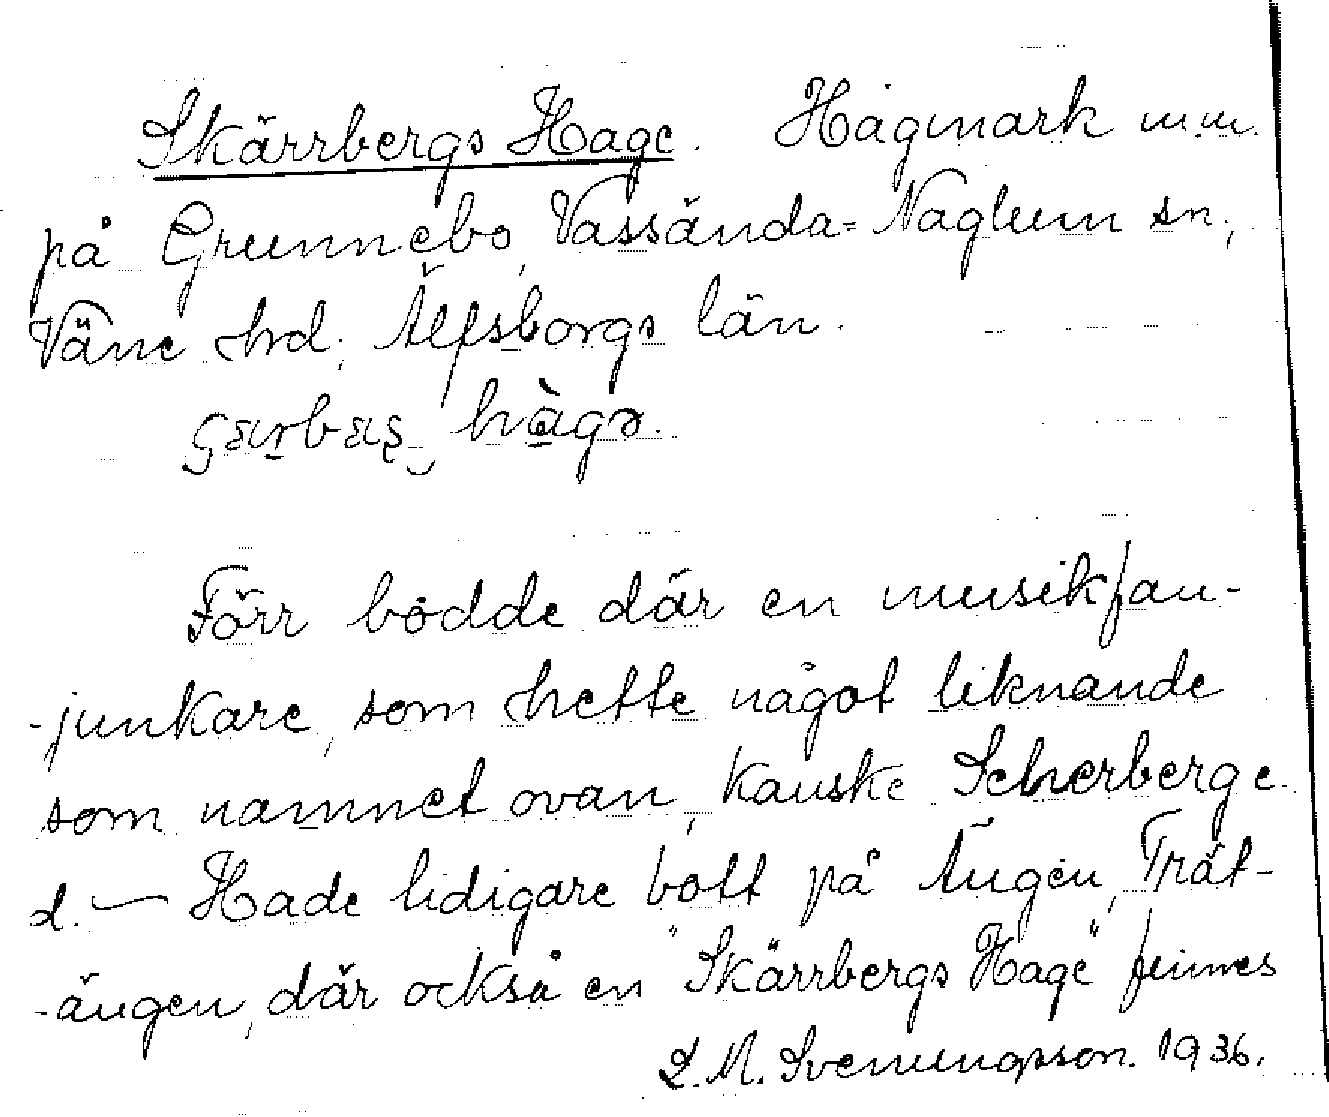 Skärrbergs Hage. Hagmark m.m.
på Grunnebo, Vassända-Naglum sn,
Väne hrd, Älfsborgs län.
hàgə.
Förr bodde där en musikfan-
-junkare, som hette något liknande
som namnet ovan, kanske Scherberg e.
d. — Hade tidigare bott på Ängen, Trät-
-ängen, där också en "Skärrbergs Hage" finnes
L. M. Svenungsson. 1936.